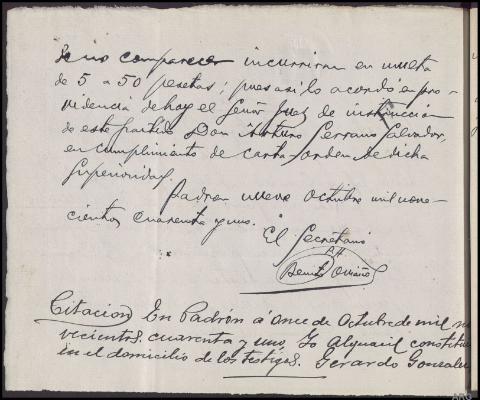 de no comparecer incurriran en multa
de 5 a 50 pesetas; pues asi lo acordó en pro-
videncia de hoy el Señor Juez de instrucción
de este partido Don Arturo Serrano Salvador,
en cumplimiento de carta-orden de dicha
Superioridad.
Padron nueve Octubre mil nove-
cientos cuarenta y uno.
El Secretario
Benito
Citacion En Padrón á once de Octubre de mil no
vecientos cuarenta y uno, Yo Alguacil constitui
en el domicilio de los testigos. Gerardo Gonzalez